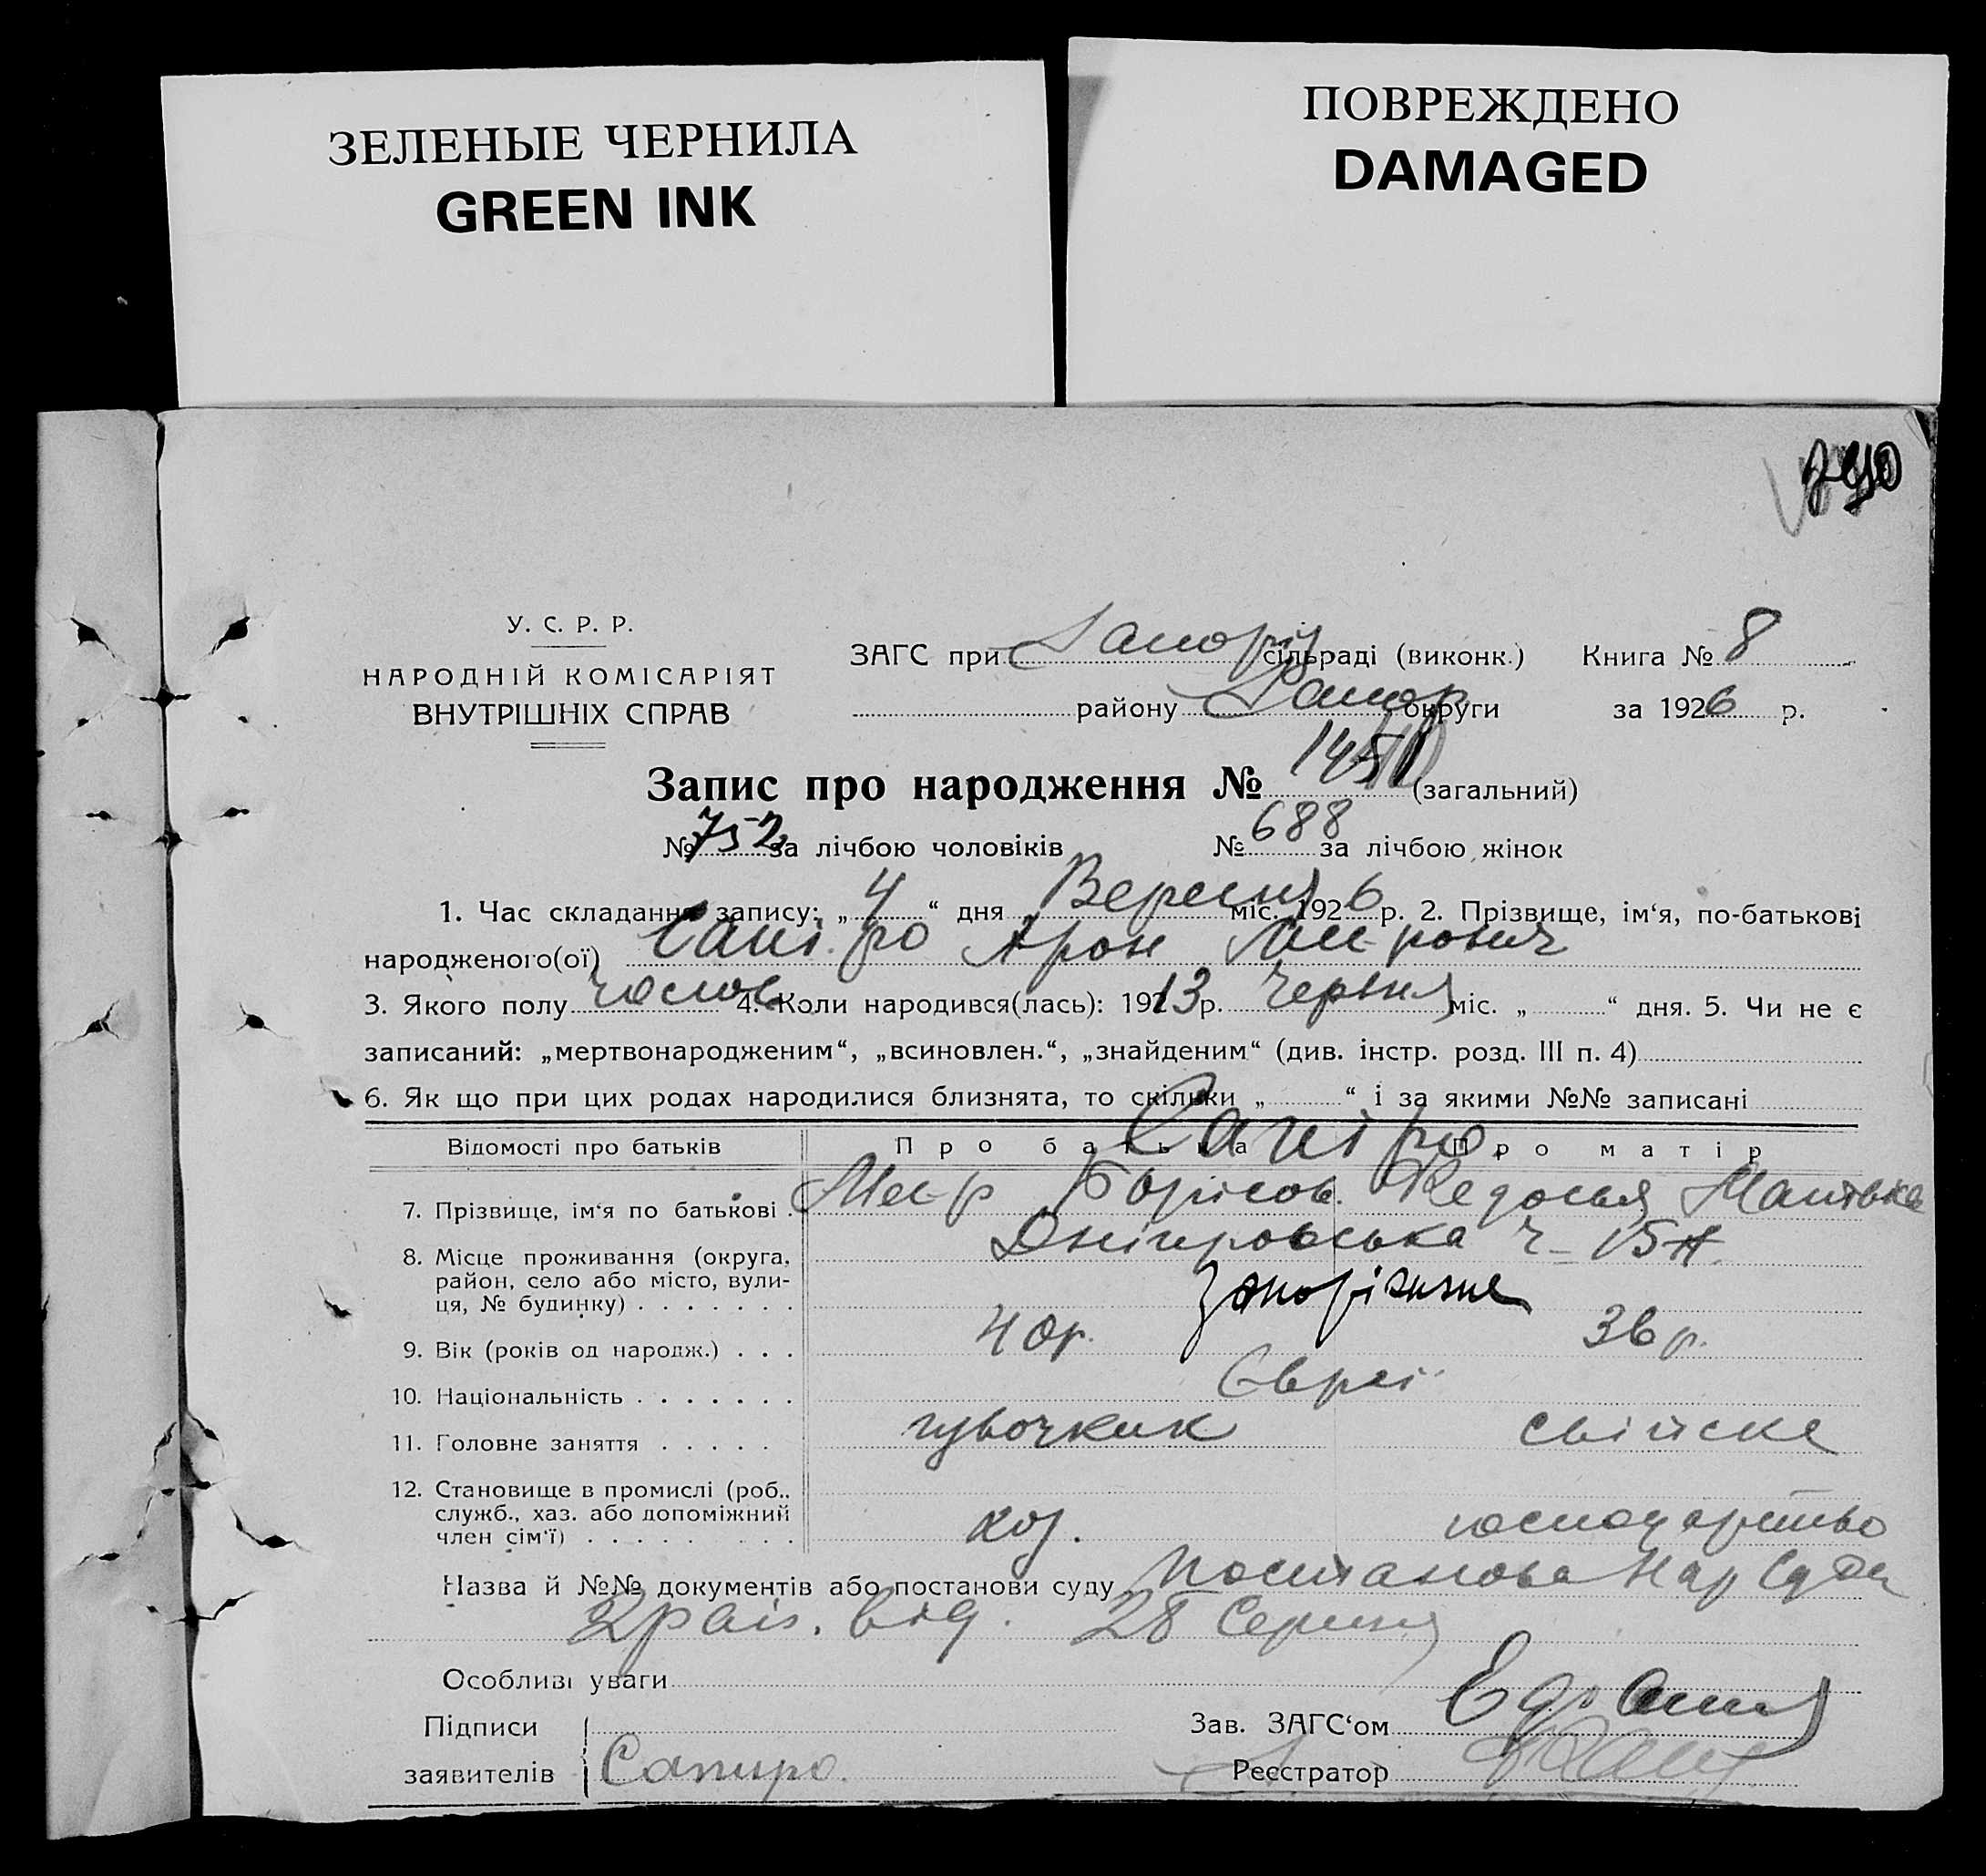 ЗЕЛЕНЫЕ ЧЕРНИЛА
GREEN INK
ПОВРЕЖДЕНО
DAMAGED
У. С. Р. Р.
НАРОДНІЙ КОМІСАРІЯТ
ВНУТРІШНІХ СПРАВ
ЗАГС при Запоріз сільраді (виконк.) Книга № 8
району Запор округи за 1926 р.
Запис про народження № 145 (загальний)
№ 752 за лічбою чоловіків № 688 за лічбою жінок
1. Час складання запису: „ 4 “ дня „ Вересня міс. 1926 р. 2. Прізвище, ім‘я, по-батькові
народженого(ої) Сапіро Арон Меєрович
3. Якого полу чолов 4. Коли народився(лась): 1913 р. Червня міс. „ “ дня. 5. Чи не є
записаний: „мертвонародженим“, „всиновлен.“, „знайденим“ (див. інстр. розд. III п. 4)
6. Як що при цих родах народилися близнята, то скільки „ “ і за якими №№ записані
Відомості про батьків Про батька Про матір
Сапіро
7. Прізвище, ім‘я по батькові Меєр Борісов.
8. Місце проживання (округа, район, село або місто, вули-
ця, № будинку) Дніпровська ч 15
Запоріжжя
9. Вік (років од народж.) 40р. 36 р.
10. Національність Євреї
11. Головне заняття свійске
12. Становище в промислі (роб., служб., хаз. або допоміжний
член сім‘ї) господарство
Назва й №№ документів або постанови суду Постанова Нар Суда
2 раіз. від. 28 Серпня
Особливі уваги
Підписи
заявителів Сапиро
Зав. ЗАГС‘ом
Реєстратор